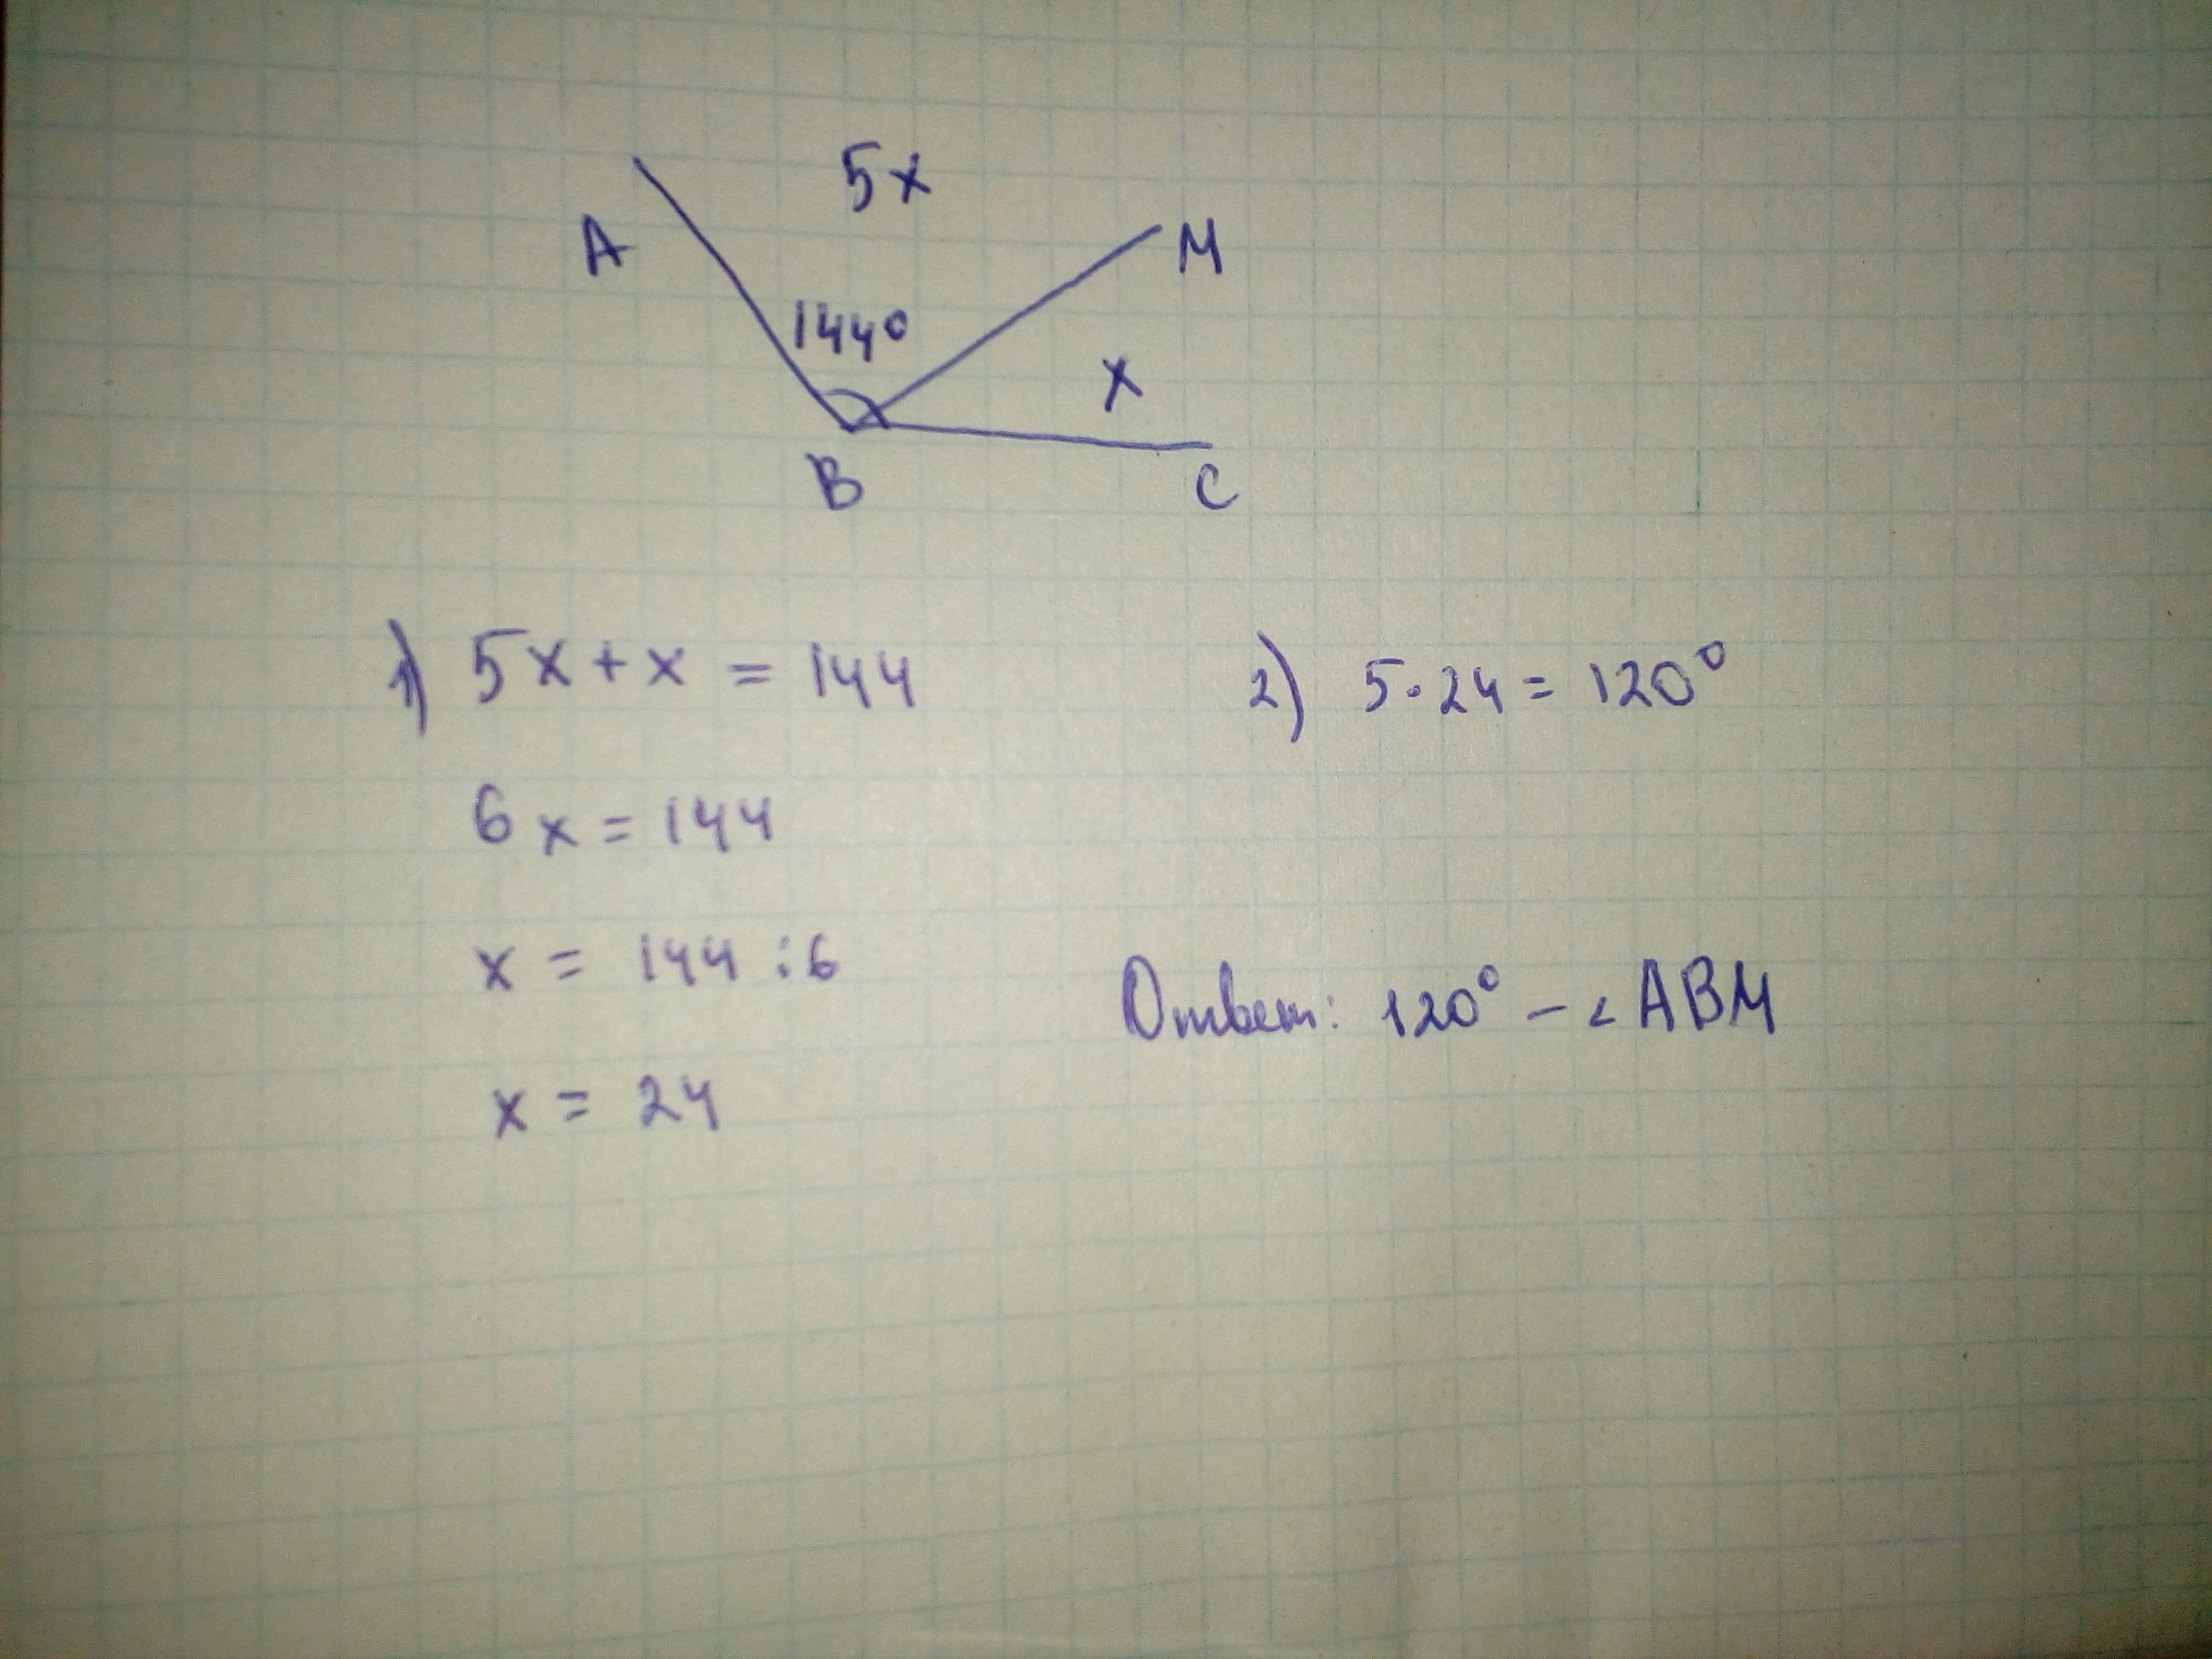 5x
A
M
144°
x
B
C
1) 5x + x = 144
6x = 144
x = 144 : 6
x = 24
2) 5 · 24 = 120°
Ответ: 120° – ∠ABM